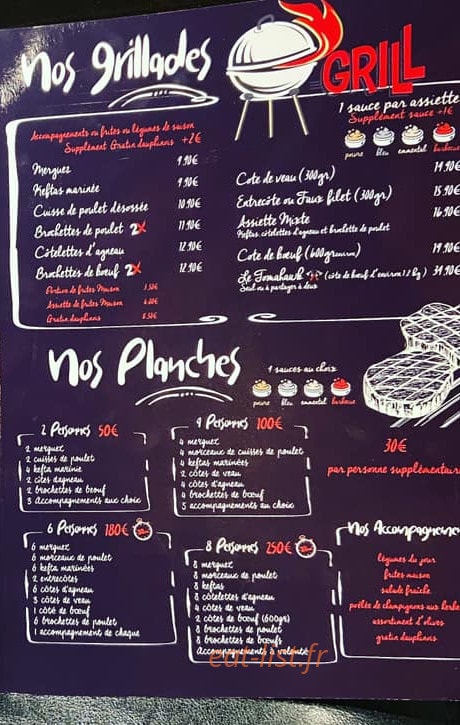 Nos grillades
GRILL
1 sauce par assiette
Supplément sauce +1€
poivre bleu emmental barbecue
Accompagnements ou frites ou légumes de saison
Supplément Gratin dauphinois +2€
Merguez 9.90€
Keftas marinée 9.90€
Cuisse de poulet désossée 10.90€
Brochettes de poulet 2X 11.90€
Côtelettes d'agneau 12.90€
Brochettes de bœuf 2X 12.90€
Portion de frites Maison 3.50€
Assiette de frites Maison 6.00€
Gratin dauphinois 6.50€
Cote de veau (300gr) 14.90€
Entrecôte ou Faux filet (300gr) 15.90€
Assiette Mixte 16.90€
Keftas, côtelettes d'agneau et brochette de poulet
Cote de bœuf (600gramm) 19.90€
Le Tomahawk (côte de bœuf d'environ 1.2 kg) 34.90€
Seul ou à partager à deux
Nos Planches
4 sauces au choix
poivre bleu emmental barbecue
2 Personnes 50€
2 merguez
2 cuisses de poulet
4 kefta marinée
2 côtes d'agneau
2 brochettes de bœuf
3 accompagnements aux choix
4 Personnes 100€
4 merguez
4 morceaux de cuisses de poulet
4 keftas marinées
2 côtes de veau
4 côtes d'agneau
4 brochettes de bœuf
3 accompagnements au choix
30€
par personne supplémentaire
6 Personnes 180€
6 merguez
6 morceaux de poulet
6 kefta marinées
2 entrecôtes
6 côtes d'agneau
3 côtes de veau
1 côté de bœuf
6 brochettes de poulet
1 accompagnement de chaque
8 Personnes 250€
8 merguez
8 morceaux de poulet
8 keftas
8 côtelettes d'agneau
4 côtes de veau
2 côtes de bœuf (600gr)
8 brochettes de poulet
8 brochettes de bœufs
Accompagnements à volonté
Nos Accompagnemen
légumes du jour
frites maison
salade fraîche
poêlée de champignons aux herbe
assortiment d'olives
gratin dauphinois
eat-list.fr